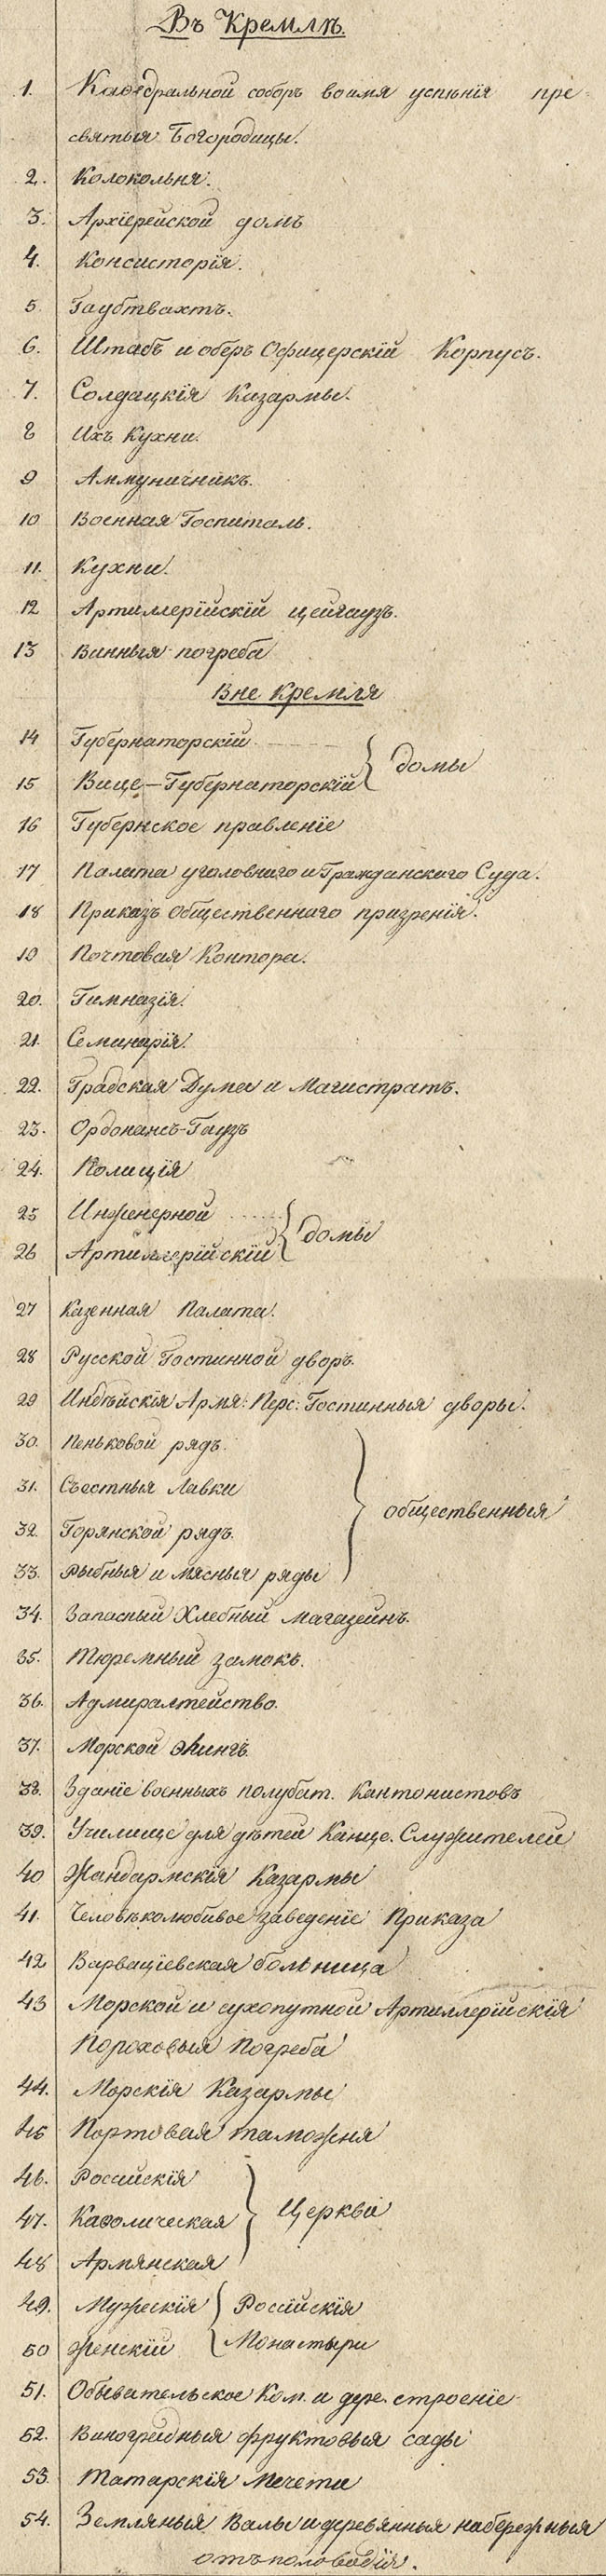 Въ Кремлѣ.
1. Каѳедральной соборъ во имя успѣнія пре
святыя Богородицы.
2. Колокольня.
3. Архіерейской домъ
4. Консисторія.
5 Гаубтвахтъ.
6. Штабъ и оберъ Офицерскій Корпусъ.
7. Солдацкія Казармы.
8 Ихъ Кухни.
9 Аммуничникъ.
10 Военная Госпиталь.
11. Кухни.
12 Артиллерійскій цейгаузъ.
13 Винныя погреба
Вне Кремля
14 Губернаторскій
домы
15 Вице-Губернаторскій
16 Губернское правленіе
17 Палата уголовнаго и Гражданскаго Суда.
18 Приказъ Общественнаго призренія.
19 Почтовая Контора.
20. Гимназія.
21. Семинарія.
22. Градская Дума и Магистратъ.
23. Ордонансъ-Гаузъ
24. Полиція
25 Инженерной
домы
26 Артиллерійскій
27 Казенная Палата.
28 Русской Гостинной дворъ.
29 Индѣйскія Армя: Перс: Гостинныя дворы.
30. Пеньковой рядъ.
31. Съестныя Лавки
общественныя
32. Горянской рядъ.
33. Рыбныя и мясныя ряды
34. Запасный Хлебный магазейнъ.
35. Тюремный замокъ.
36. Адмиралтейство.
37. Морской
38. Зданіе военныхъ полубат. Кантонистовъ
39. Училище для дѣтей Канце. Служителей
40 Жандармскія Казармы
41. Человѣколюбивое заведеніе Приказа
42 Варваціевская больница
43 Морской и сухопутной Артиллерійскія
Пороховыя Погреба
44. Морскія Казармы
45 Портовая таможня
46. Россійскія
47. Каѳолическая Церкви
48 Армянская
49. Мужескія Россійскія
50 Женскій Монастыри
51. Обывательское Кам. и дере. строеніе
52. Виноградныя фруктовыя сады
53. Татарскія Мечети
54. Земляныя Валы и деревянныя набережныя
отъ половодія.